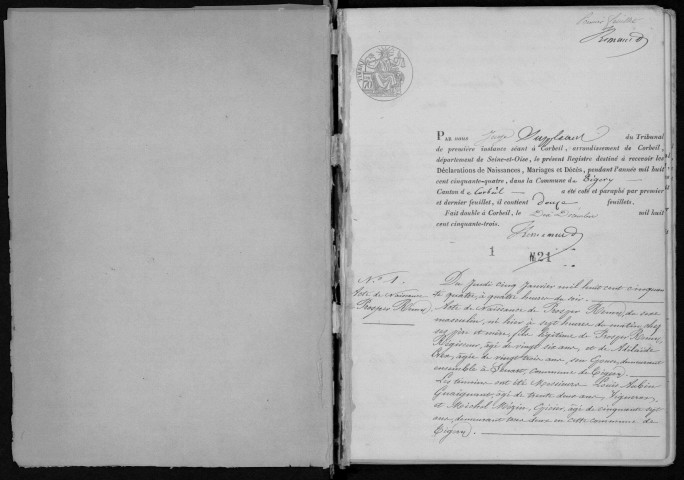 Premier feuillet
PAR nous Juge Suppléant du Tribunal
de première instance séant à Corbeil, arrondissement de Corbeil,
département de Seine-et-Oise, le présent Registre destiné à recevoir les
Déclarations de Naissances, Mariages et Décès, pendant l'année mil huit
cent cinquante-quatre, dans la Commune de Tigery
Canton de Corbeil a été coté et paraphé par premier
et dernier feuillet, il contient douze feuillets.
Fait double à Corbeil, le Dix Décembre mil huit
cent cinquante-trois.
1
N° 1.
Acte de Naissance
Prosper
Du Jeudi cinq Janvier mil huit cent cinquan
te quatre, à quatre heures du soir.
Acte de Naissance de Prosper du sexe
masculin, né hier à sept heures du matin, chez
ses père et mère, fils légitime de Prosper
Régisseur, âgé de vingt six ans, et de Adélaïde
âgée de vingt trois ans, son épouse, demeurant
ensemble à Senart, commune de Tigery.
Les témoins ont été Messieurs Louis Aubin
âgé de trente deux ans, Vigneron,
et Michel âgé de cinquante sept
ans, demeurant tous deux en cette commune de
Tigery.